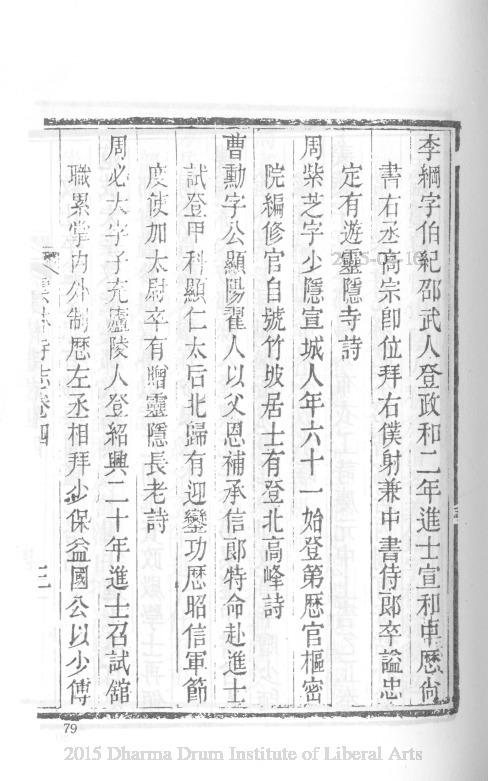 李綱字伯紀邵武人登政和二年進士宣和中歷尙
書右丞高宗卽位拜右僕射兼中書侍郎卒謚忠
定有遊靈隱寺詩
周紫芝字少隱宣城人年六十一始登第歷官樞密
院編修官自號竹坡居士有登北高峰詩
曹勳字公顯陽翟人以父恩補承信郎特命赴進士
試登甲科顯仁太后北歸有迎鑾功歷昭信軍節
度使加太尉卒有贈靈隱長老詩
周必大字子充廬陵人登紹興二十年進士召試舘
職累掌內外制歷左丞相拜少保益國公以少傅
雲林寺志卷四
三
79
2015 Dharma Drum Institute of Liberal Arts